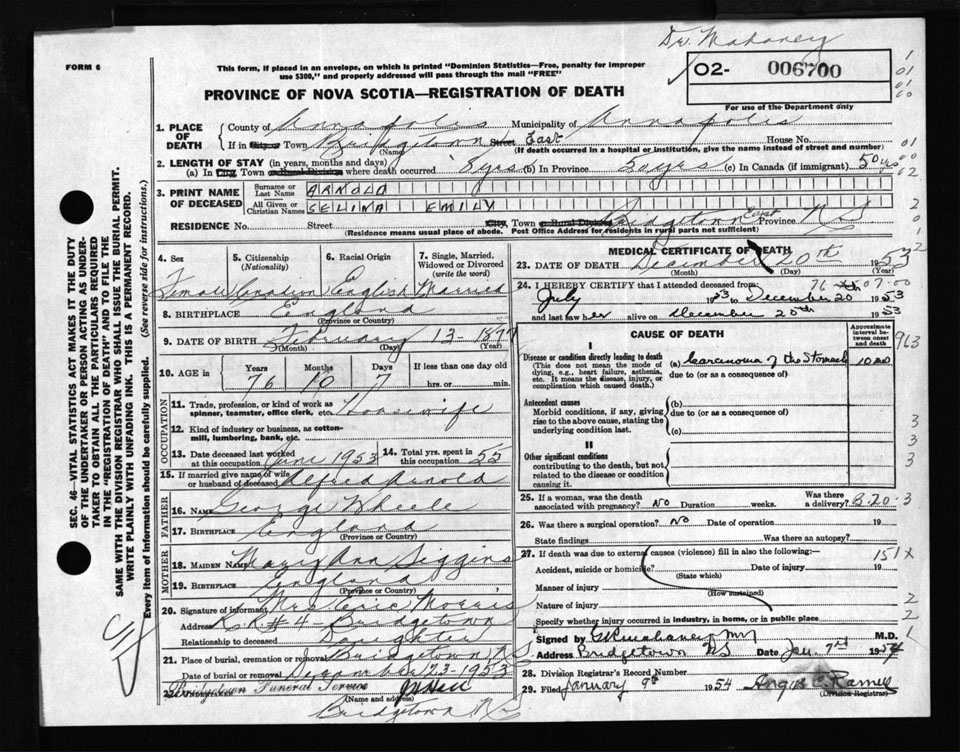 Dr. Mahaney
FORM 6
This form, if placed in an envelope, on which is printed "Dominion Statistics—Free, penalty for improper
use $300," and properly addressed will pass through the mail "FREE"
02- 006700
For use of the Department only
PROVINCE OF NOVA SCOTIA—REGISTRATION OF DEATH
1. PLACE OF DEATH { County of Annapolis Municipality of Annapolis
If in City or Town Bridgetown East Street House No.
(Name) (If death occurred in a hospital or institution, give the name instead of street and number)
2. LENGTH OF STAY (in years, months and days)
(a) In City, Town or Rural Division where death occurred 8 yrs (b) In Province 50 yrs (c) In Canada (if immigrant) 50 yrs
3. PRINT NAME OF DECEASED { Surname or Last Name ARNOLD
All Given or Christian Names SELINA EMILY
RESIDENCE No. Street City, Town or Rural Division Bridgetown East Province N.S.
(Residence means usual place of abode. Post Office Address for residents in rural parts not sufficient)
4. Sex Female
5. Citizenship (Nationality) Canadian
6. Racial Origin English
7. Single, Married, Widowed or Divorced (write the word) Married
8. BIRTHPLACE England
(Province or Country)
9. DATE OF BIRTH February 13 - 1877
(Month) (Day) (Year)
10. AGE in Years 76 Months 10 Days 7 If less than one day old hrs. or min.
OCCUPATION
11. Trade, profession, or kind of work as spinner, teamster, office clerk, etc. housewife
12. Kind of industry or business, as cotton-mill, lumbering, bank, etc.
13. Date deceased last worked at this occupation June 1953
14. Total yrs. spent in this occupation 55
15. If married give name of wife or husband of deceased Alfred Arnold
FATHER
16. NAME George
17. BIRTHPLACE England
(Province or Country)
MOTHER
18. MAIDEN NAME Mary Ann Siggins
19. BIRTHPLACE England
(Province or Country)
20. Signature of informant Mrs Eric Morris
Address R.R #4 - Bridgetown
Relationship to deceased Daughter
21. Place of burial, cremation or removal Bridgetown N.S.
Date of burial or removal December 23 - 1953
22. Bridgetown Funeral Service
(Name and address)
Bridgetown N.S.
MEDICAL CERTIFICATE OF DEATH
23. DATE OF DEATH December 20th 1953
(Month) (Day) (Year)
24. I HEREBY CERTIFY that I attended deceased from: 76 07.00
July 1953 to December 20 1953
and last saw her alive on December 20th 1953
CAUSE OF DEATH
Approximate interval between onset and death
I
Disease or condition directly leading to death
(This does not mean the mode of dying, e.g., heart failure, asthenia, etc. It means the disease, injury, or complication which caused death.)
(a) Carcinoma of the Stomach 10 mo
due to (or as a consequence of)
Antecedent causes
Morbid conditions, if any, giving rise to the above cause, stating the underlying condition last.
(b)
due to (or as a consequence of)
(c)
II
Other significant conditions
contributing to the death, but not related to the disease or condition causing it.
25. If a woman, was the death associated with pregnancy? No Duration weeks. Was there a delivery? 8.20.3
26. Was there surgical operation? No Date of operation 19
State findings Was there an autopsy?
27. If death was due to external causes (violence) fill in also the following:
151X
Accident, suicide or homicide? Date of injury 19
(State which)
Manner of injury
(How sustained)
Nature of injury
Specify whether injury occurred in industry, in home, or in public place
Signed by M.D.
Address Bridgetown NS Date Jan. 7th 1954
28. Division Registrar's Record Number
29. Filed January 9th 1954
(Division Registrar)
SEC. 46—VITAL STATISTICS ACT MAKES IT THE DUTY
OF THE UNDERTAKER OR PERSON ACTING AS UNDER-
TAKER TO OBTAIN ALL THE PARTICULARS REQUIRED
IN THE "REGISTRATION OF DEATH" AND TO FILE THE
SAME WITH THE DIVISION REGISTRAR WHO SHALL ISSUE THE BURIAL PERMIT.
WRITE PLAINLY WITH UNFADING INK. THIS IS A PERMANENT RECORD.
Every item of information should be carefully supplied. (See reverse side for instructions.)